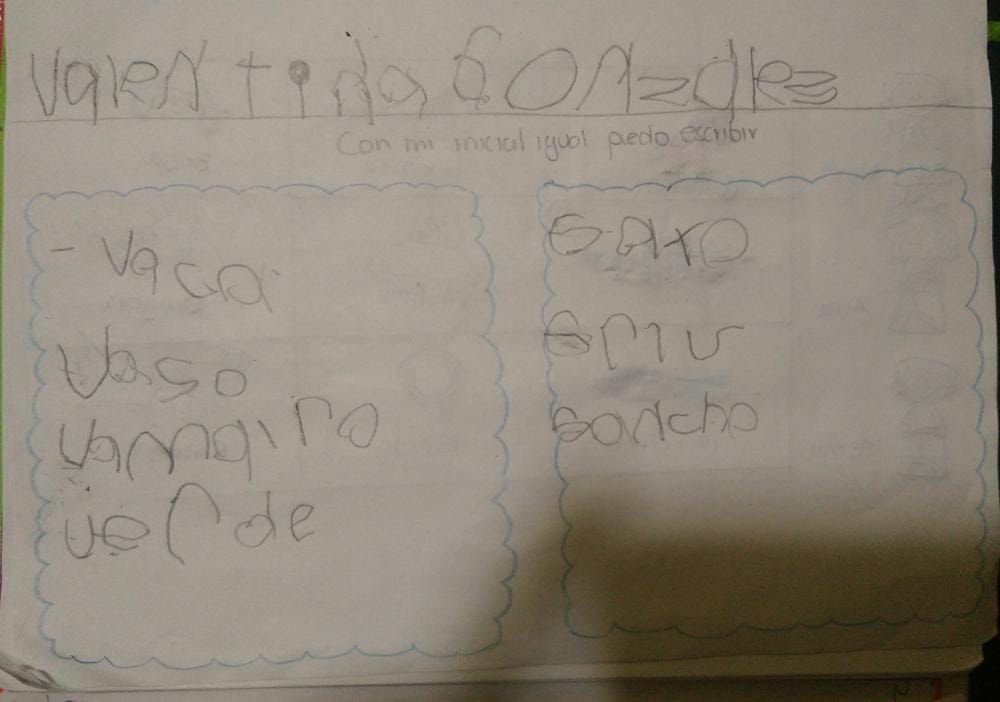 Valentina Gonzalez
Con mi inicial igual puedo escribir
- Vaca
Vaso
Vamairo
verde
GAtO
Griu
Gancho